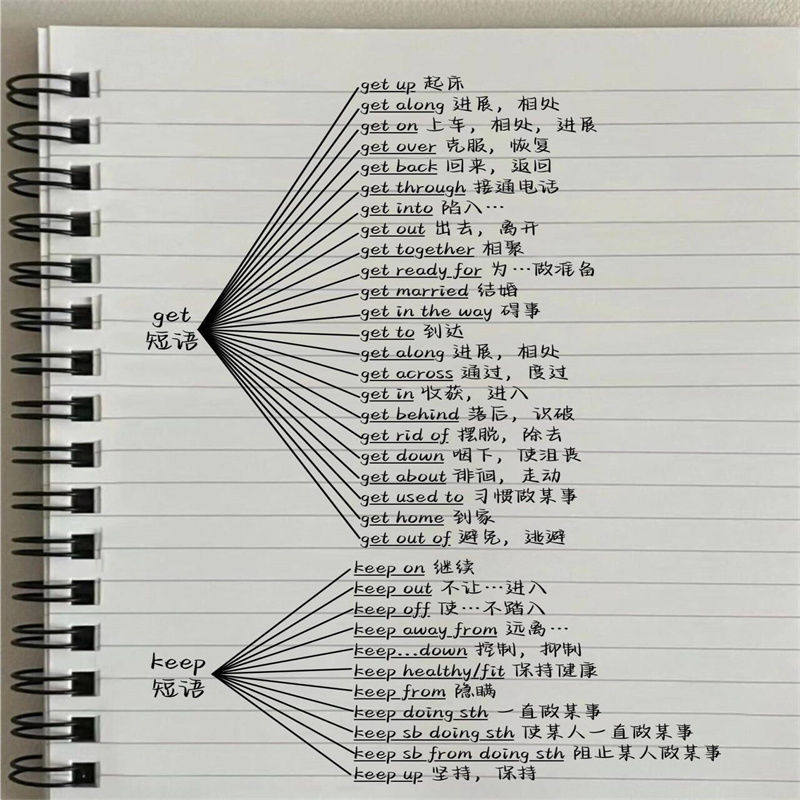 get up 起床
get along 进展，相处
get on 上车，相处，进展
get over 克服，恢复
get back 回来，返回
get through 接通电话
get into 陷入…
get out 出去，离开
get together 相聚
get ready for 为…做准备
get married 结婚
get in the way 碍事
get to 到达
get along 进展，相处
get across 通过，度过
get in 收获，进入
get behind 落后，识破
get rid of 摆脱，除去
get down 咽下，使沮丧
get about 徘徊，走动
get used to 习惯做某事
get home 到家
get out of 避免，逃避
get
短语
keep on 继续
keep out 不让…进入
keep off 使…不踏入
keep away from 远离…
keep...down 控制，抑制
keep healthy/fit 保持健康
keep from 隐瞒
keep doing sth 一直做某事
keep sb doing sth 使某人一直做某事
keep sb from doing sth 阻止某人做某事
keep up 坚持，保持
keep
短语